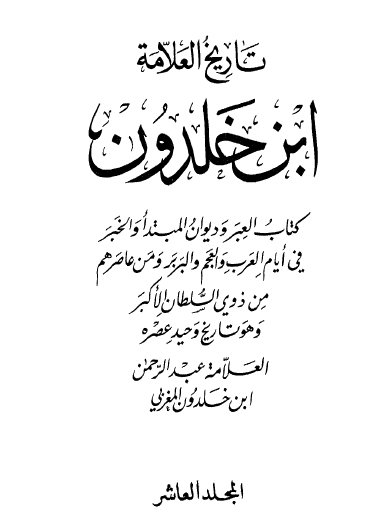 تاريخ العلامة
ابن خلدون
كتاب العبر وديوان المبتدأ والخبر
في أيام العرب والعجم والبربر ومن عاصرهم
من ذوي السلطان الأكبر
وهو تاريخ وحيد عصره
العلامة عبد الرحمن
ابن خلدون المغربي
المجلد العاشر